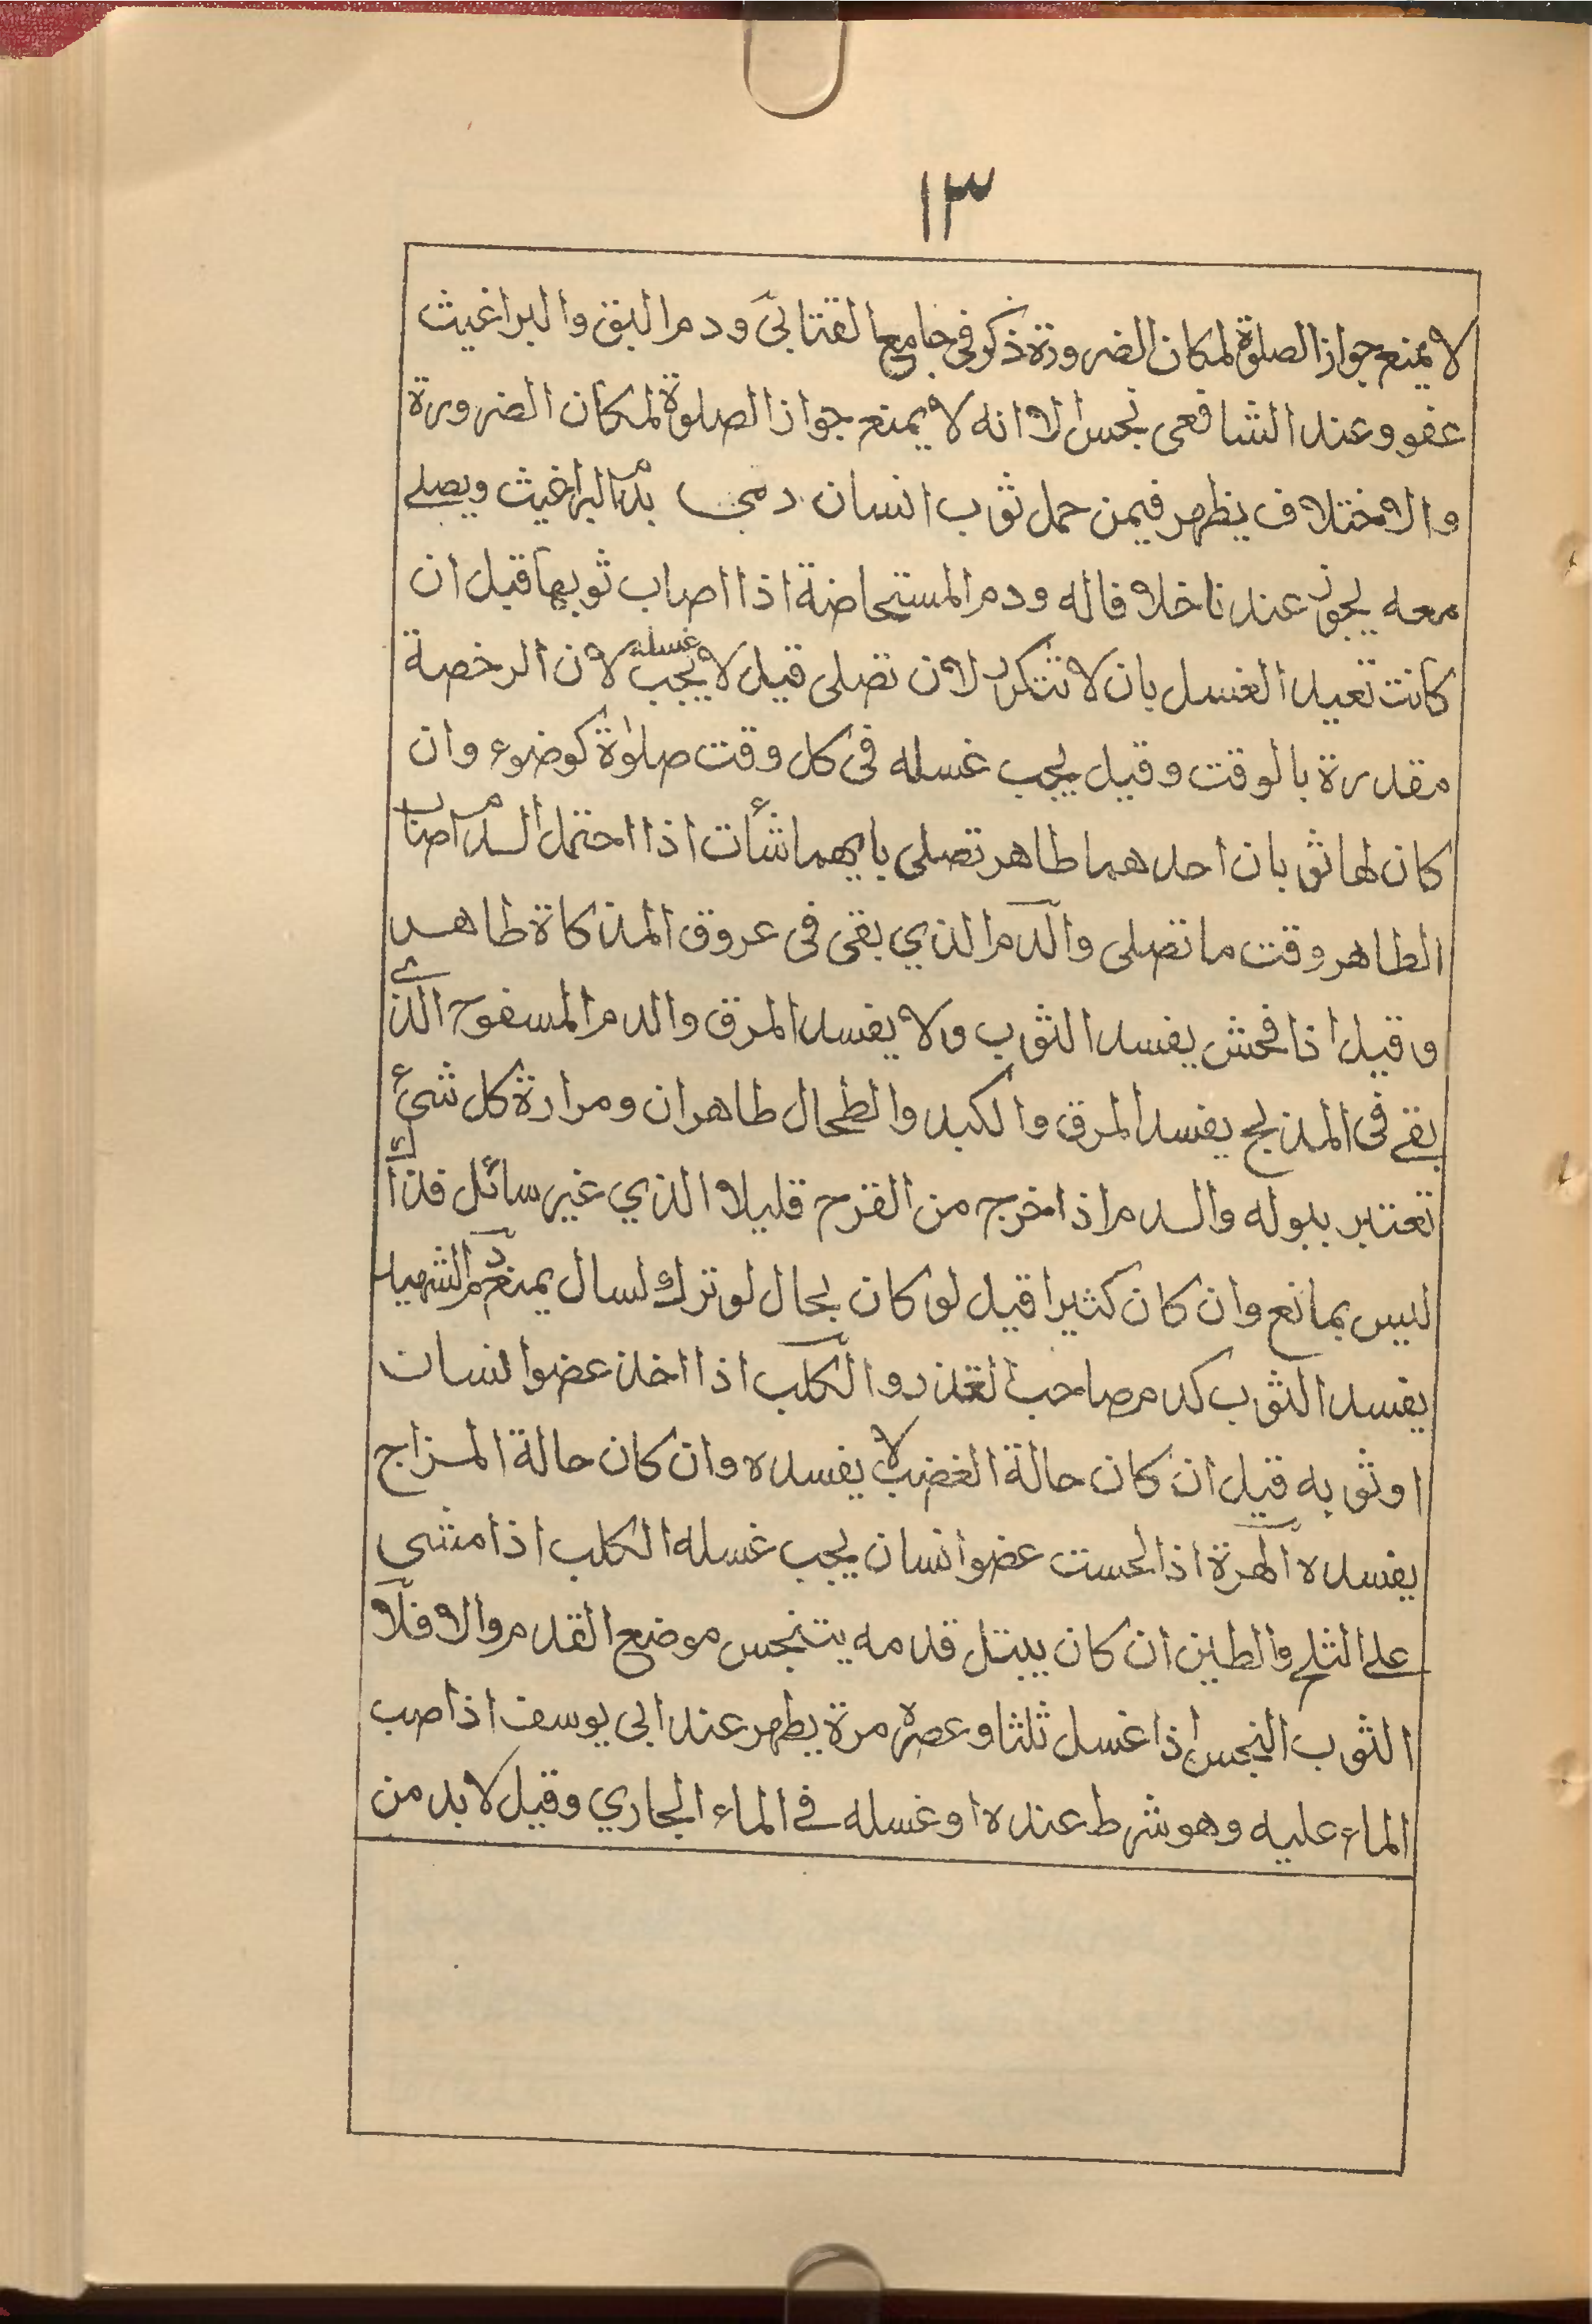 ١٣
لا يمنع جواز الصلوة لمكان الضرورة ذكر فى جامع العتابى ودم البق والبراغيث
عفو وعند الشافعى نجس الا انه لا يمنع جواز الصلوة لمكان الضرورة
والاختلاف يظهر فيمن حمل ثوب انسان بدم البراغيث ويصلے
معه يجوز عندنا خلافا له ودم المستحاضة اذا اصاب ثوبها قبل ان
كانت تعيد الغسل بان لا تتكرر لان تصلى قيل لا يجب غسله لان الرخصة
مقدرة بالوقت وقيل يجب غسله فى كل وقت صلوة كوضوء وان
كان لها ثوبان احدهما طاهر تصلى بايهما شأت اذا احتمل الدم اصاب
الطاهر وقت ما تصلى والدم الذي بقى فى عروق المذكاة طاهر
وقيل اذا فحش يفسد الثوب ولا يفسد المرق والدم المسفوح الذے
بقے فى المذبح يفسد المرق والكبد والطحال طاهران ومرارة كل شئ
تعتبر ببوله والدم اذا خرج من القرح قليلا الذي غير سائل فذاك
ليس بمانع وان كان كثيرا قيل لو كان بحال لو ترك لسال يمنع دم الشهيد
يفسد الثوب كدم صاحب العذر والكلب اذا اخذ عضو انسان
او ثوبه قيل ان كان حالة الغضب لا يفسده وان كان حالة المزاج
يفسده الهرة اذا لحست عضو انسان يجب غسله الكلب اذا مشى
علے الثلج والطين ان كان يبتل قدمه يتنجس موضع القدم والا فلا
الثوب النجس اذا غسل ثلثا وعصره مرة يطهر عند ابى يوسف اذا صب
الماء عليه وهو شرط عنده او غسله فے الماء الجاري وقيل لا بد من